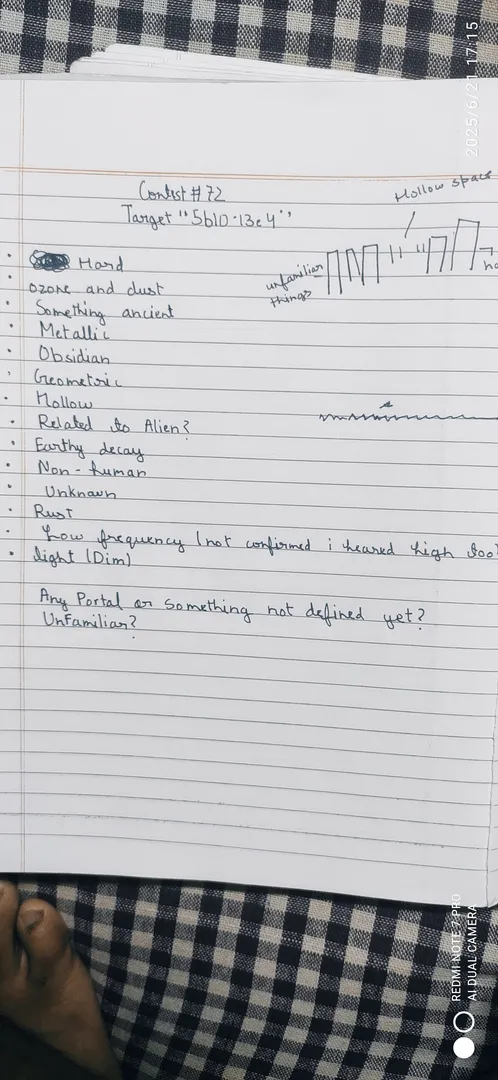 2025/6/21 17:15
Hollow space
Contest #72
Target "5b10-13c4"
unfamiliar
things
Hard
ozone and dust
Something ancient
Metallic
Obsidian
Geometric
Hollow
Related to Alien?
Earthy decay
Non-human
Unknown
Rust
Low frequency (not confirmed i heared high
light (Dim)
Any Portal or something not defined yet?
UnFamiliar?
REDMI NOTE 7 PRO
AI DUAL CAMERA